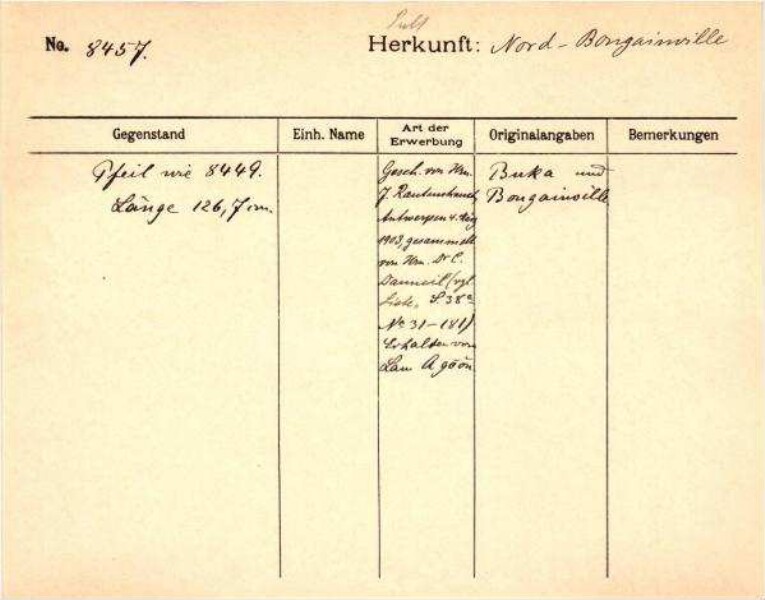 No. 8457.
Herkunft: Nord-Bougainville
Gegenstand
Einh. Name
Art der
Erwerbung
Originalangaben
Bemerkungen
Pfeil wie 8449.
Länge 126,7 cm.
Gesch. von Hrn.
J. Rautenstrauch,
Antwerpen 4. Aug
1903, gesammelt
von Hrn. Dr C.
(vgl.
Liste, S. 38a
No 31-181)
Erhalten von
Buka und
Bougainville